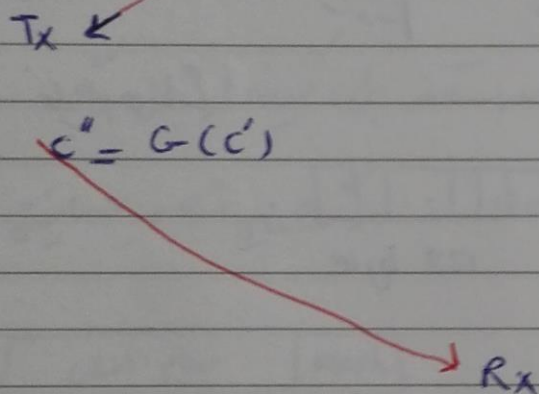 Tx
c" = G(c')
Rx